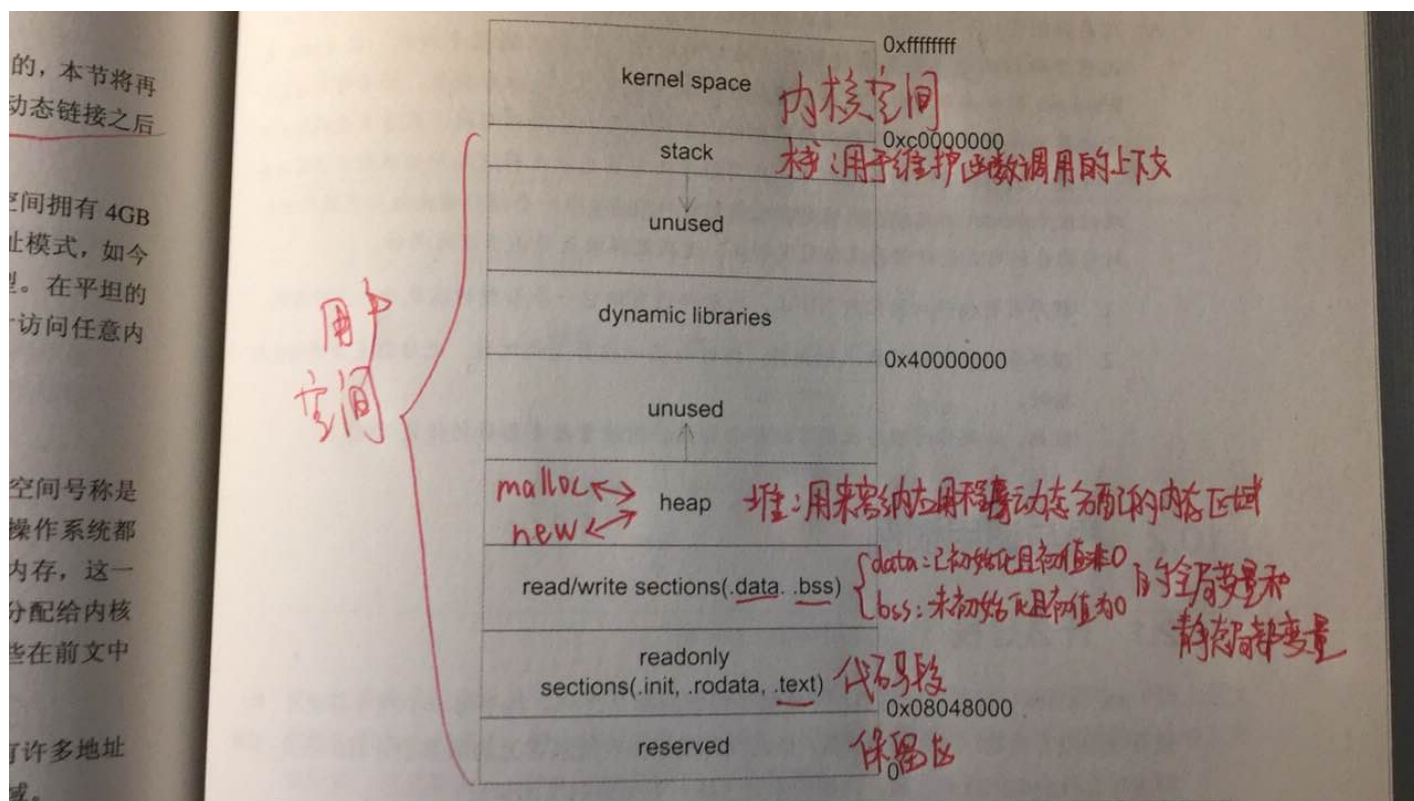 的，本节将再
动态链接之后
空间拥有 4GB
址模式，如今
型。在平坦的
访问任意内
空间号称是
操作系统都
内存，这一
分配给内核
些在前文中
有许多地址
域。
0xffffffff
kernel space 内核空间
0xc0000000
stack 栈：用于维护函数调用的上下文
unused
dynamic libraries
用户
空间
0x40000000
unused
malloc
heap 堆：用来容纳应用程序动态分配的内存区域
new
read/write sections(.data. .bss)
data：已初始化且初值非0
bss：未初始化且初值为0
的全局变量和
静态局部变量
readonly
sections(.init, .rodata, .text) 代码段
0x08048000
reserved 保留区
0